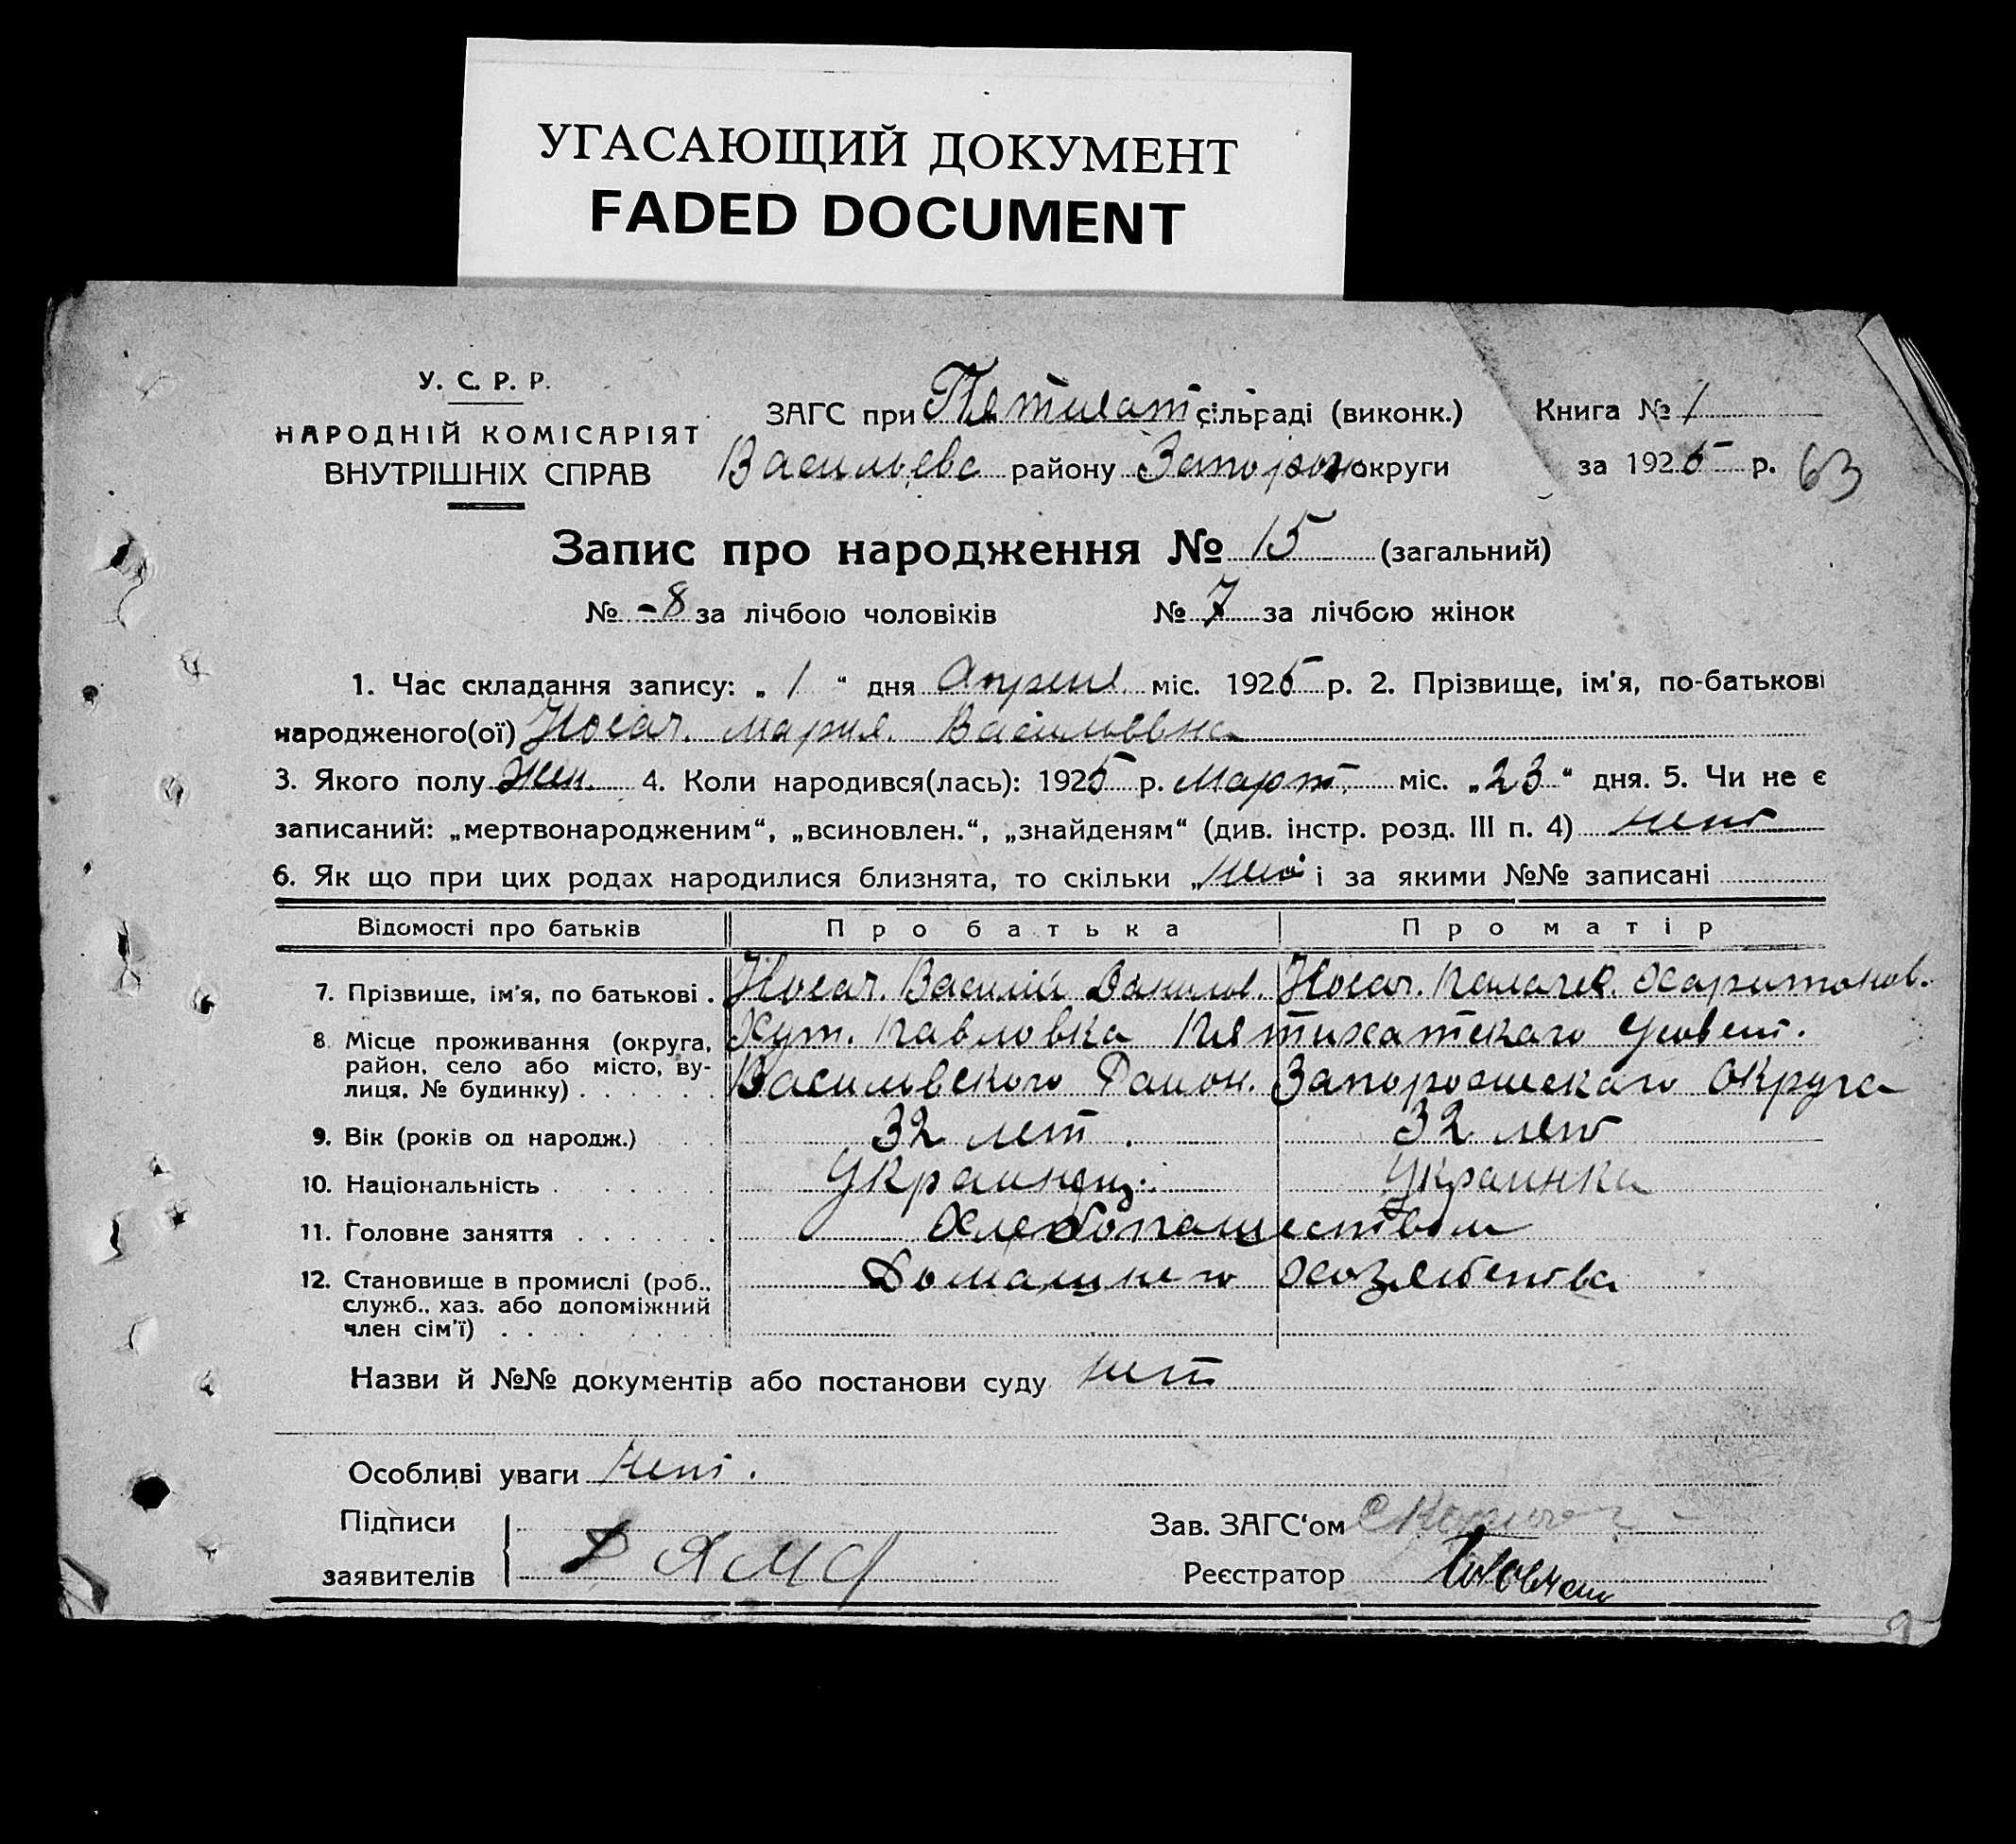 УГАСАЮЩИЙ ДОКУМЕНТ
FADED DOCUMENT
У. С. Р. Р.
НАРОДНІЙ КОМІСАРІЯТ
ВНУТРІШНІХ СПРАВ
ЗАГС при Пятихат сільраді (виконк.)
Васильевс району Запорож округи
Книга № 1
за 1925 р. 63
Запис про народження № 15 (загальний)
№ -8 за лічбою чоловіків № 7 за лічбою жінок
1. Час складання запису: „ 1 “ дня Апреля міс. 1925 р. 2. Прізвище, ім'я, по-батькові
народженого(ої) Носач. Мария. Васильевна
3. Якого полу Жен. 4. Коли народився(лась): 1925 р. Март. міс. „23“ дня. 5. Чи не є
записаний: „мертвонародженим“, „всиновлен.“, „знайденям“ (див. інстр. розд. III п. 4) нет
6. Як що при цих родах народилися близнята, то скільки „нет“ і за якими №№ записані
Відомості про батьків Про батька Про матір
7. Прізвище, ім'я, по батькові . Носач. Василий Данилов. Носач. Палагея Харитонов.
8. Місце проживання (округа, район, село або місто, вулиця, № будинку) . . . . . . Хут. Павловка Пятихатскаго Усовет.
Васильевского Район. Запорожскаго Округа
9. Вік (років од народж.) 32 лет. 32 лет
10. Національність . . . . . . Украинец. Украинка
11. Головне заняття . . . . . . Хлебопашеством
12. Становище в промислі (роб., служб., хаз. або допоміжний член сім'ї) . . . . . . Домашнего хозяйства
Назви й №№ документів або постанови суду нет
Особливі уваги нет.
Підписи
заявителів
Зав. ЗАГС'ом
Реєстратор